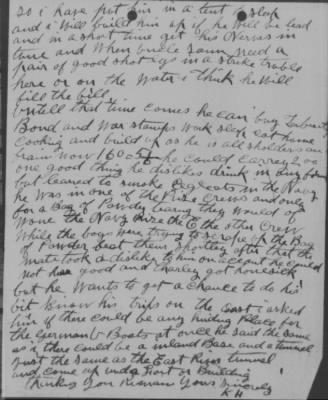 so i have put him in a tent to sleep
and i will build him up if he will be lead
and in a short time get his nerves in
tune and When uncle Sam need a
pair of good shotsigs in a strike trouble
here or on the water i think he will
fill the bill
untill that time comes he can buy Liberty
Bond and War stamps work sleep eat home
cooking and build up as he is all sholders and
brain now 160 he could carrey 200
one good thing he dislikes drink in any form
but learned to smoke segrects in the Navy
he was in one of the Prize Crews and only
for a Bag of Powder they would of
wone the Navy Prize the other Crew
While the boys were trying to the Bag
of Powder beat them shortley after that the
mate took a dislike to him on account he could
not good and Charley got homesick
but he wants to get a chance to do his
bit Know his trips on the East i asked
him if there could be any hiding Place for
the German U Boats at once he said the same
as i there could be a inland Base and a tunnel
Just the same as the East River tunnel
and come up under a Fort or Building
thinking you Remain yours Sincerely
K H